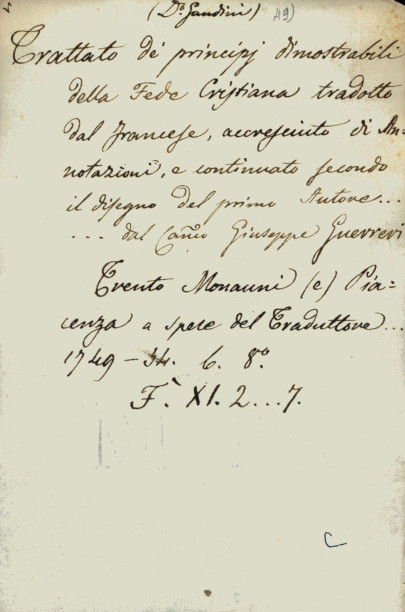 (D.r Gandini) 49)
Trattato de' principj dimostrabili
della Fede Cristiana tradotto
dal francese, accresciuto di An=
notazioni, e continuato secondo
il disegno del primo Autore...
... dal Can.co Giuseppe Guerreri
Trento Monauni (e) Pia=
cenza a spese del Traduttore...
1749-54. 6. 8.o
F. XI. 2...7.
C